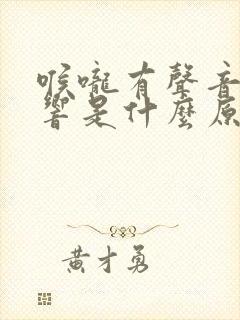 喉嚨有聲音
響是什麼原
黃才勇